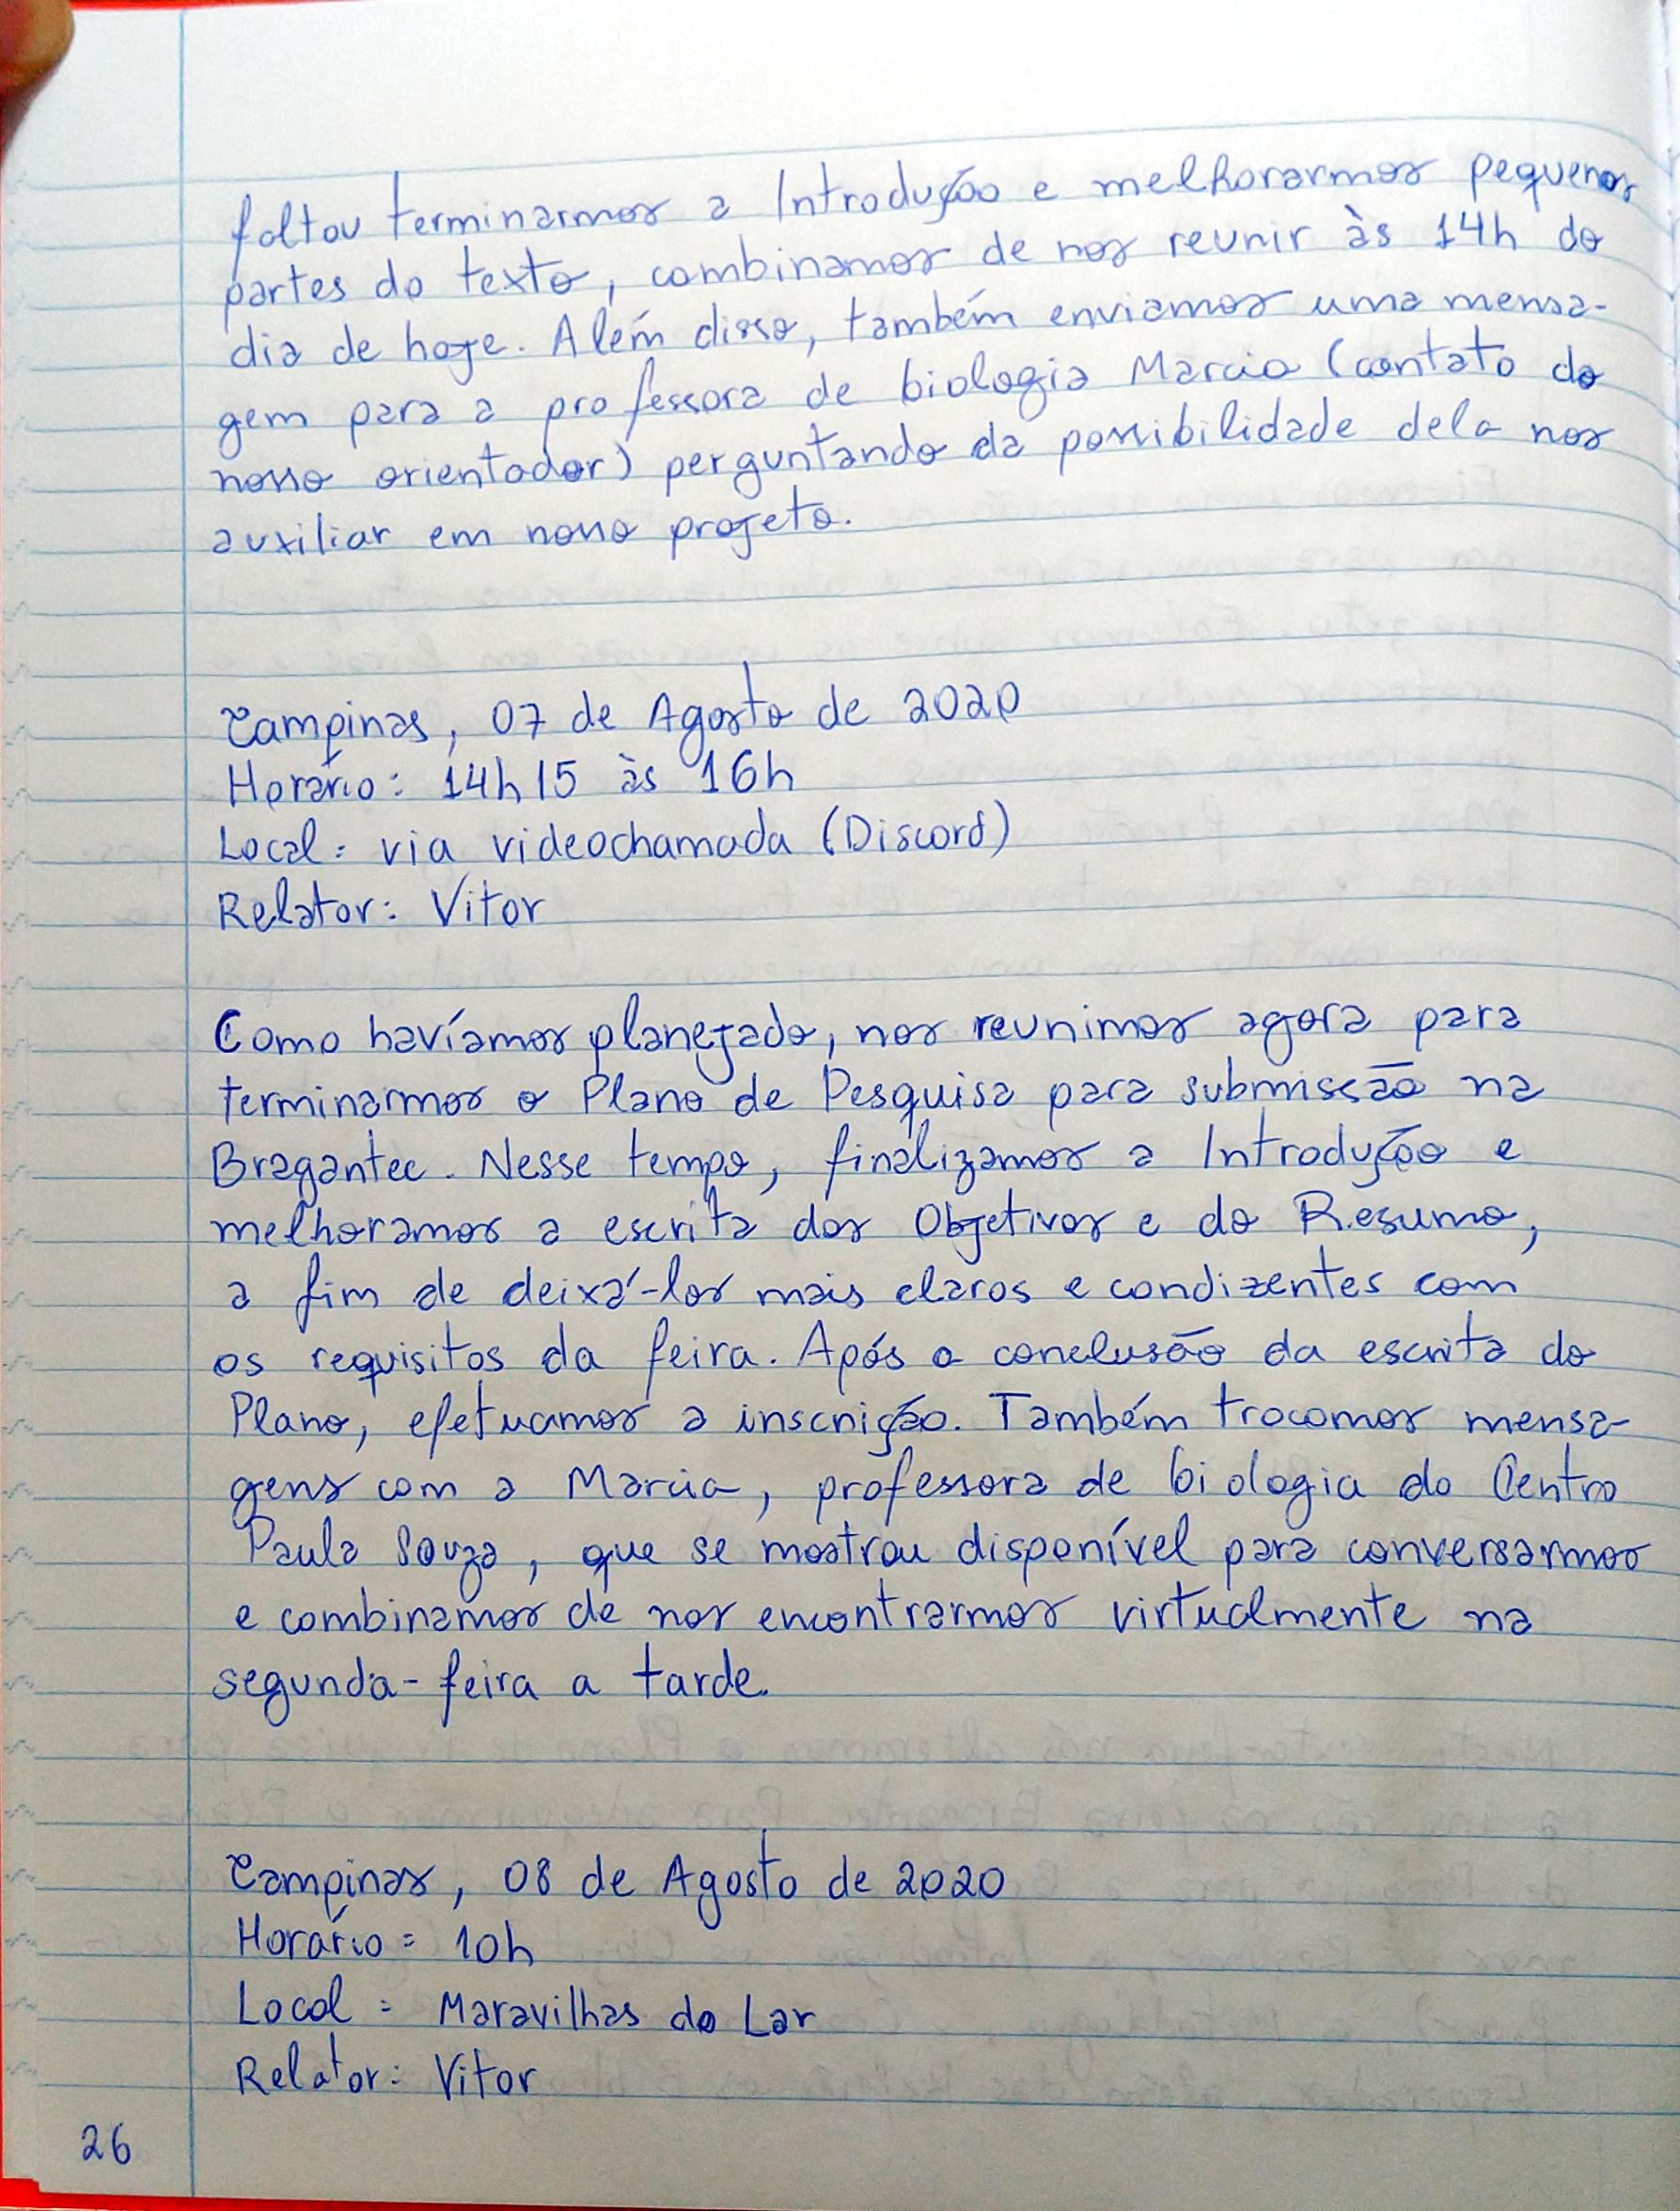 faltou terminarmos a Introdução e melhorarmos pequenas
partes do texto, combinamos de nos reunir às 14h do
dia de hoje. Além disso, também enviamos uma mensa-
gem para a professora de biologia Marcia (contato do
nosso orientador) perguntando da possibilidade dela nos
auxiliar em nosso projeto.
Campinas, 07 de Agosto de 2020
Horário: 14h15 às 16h
Local: via videochamada (Discord)
Relator: Vitor
Como havíamos planejado, nos reunimos agora para
terminarmos o Plano de Pesquisa para submissão na
Bragantec. Nesse tempo, finalizamos a Introdução e
melhoramos a escrita dos Objetivos e do Resumo,
a fim de deixá-los mais claros e condizentes com
os requisitos da feira. Após a conclusão da escrita do
Plano, efetuamos a inscrição. Também trocamos mensa-
gens com a Marcia, professora de biologia do Centro
Paula Souza, que se mostrou disponível para conversarmos
e combinamos de nos encontrarmos virtualmente na
segunda-feira a tarde.
Campinas, 08 de Agosto de 2020
Horário: 10h
Local: Maravilhas do Lar
Relator: Vitor
26